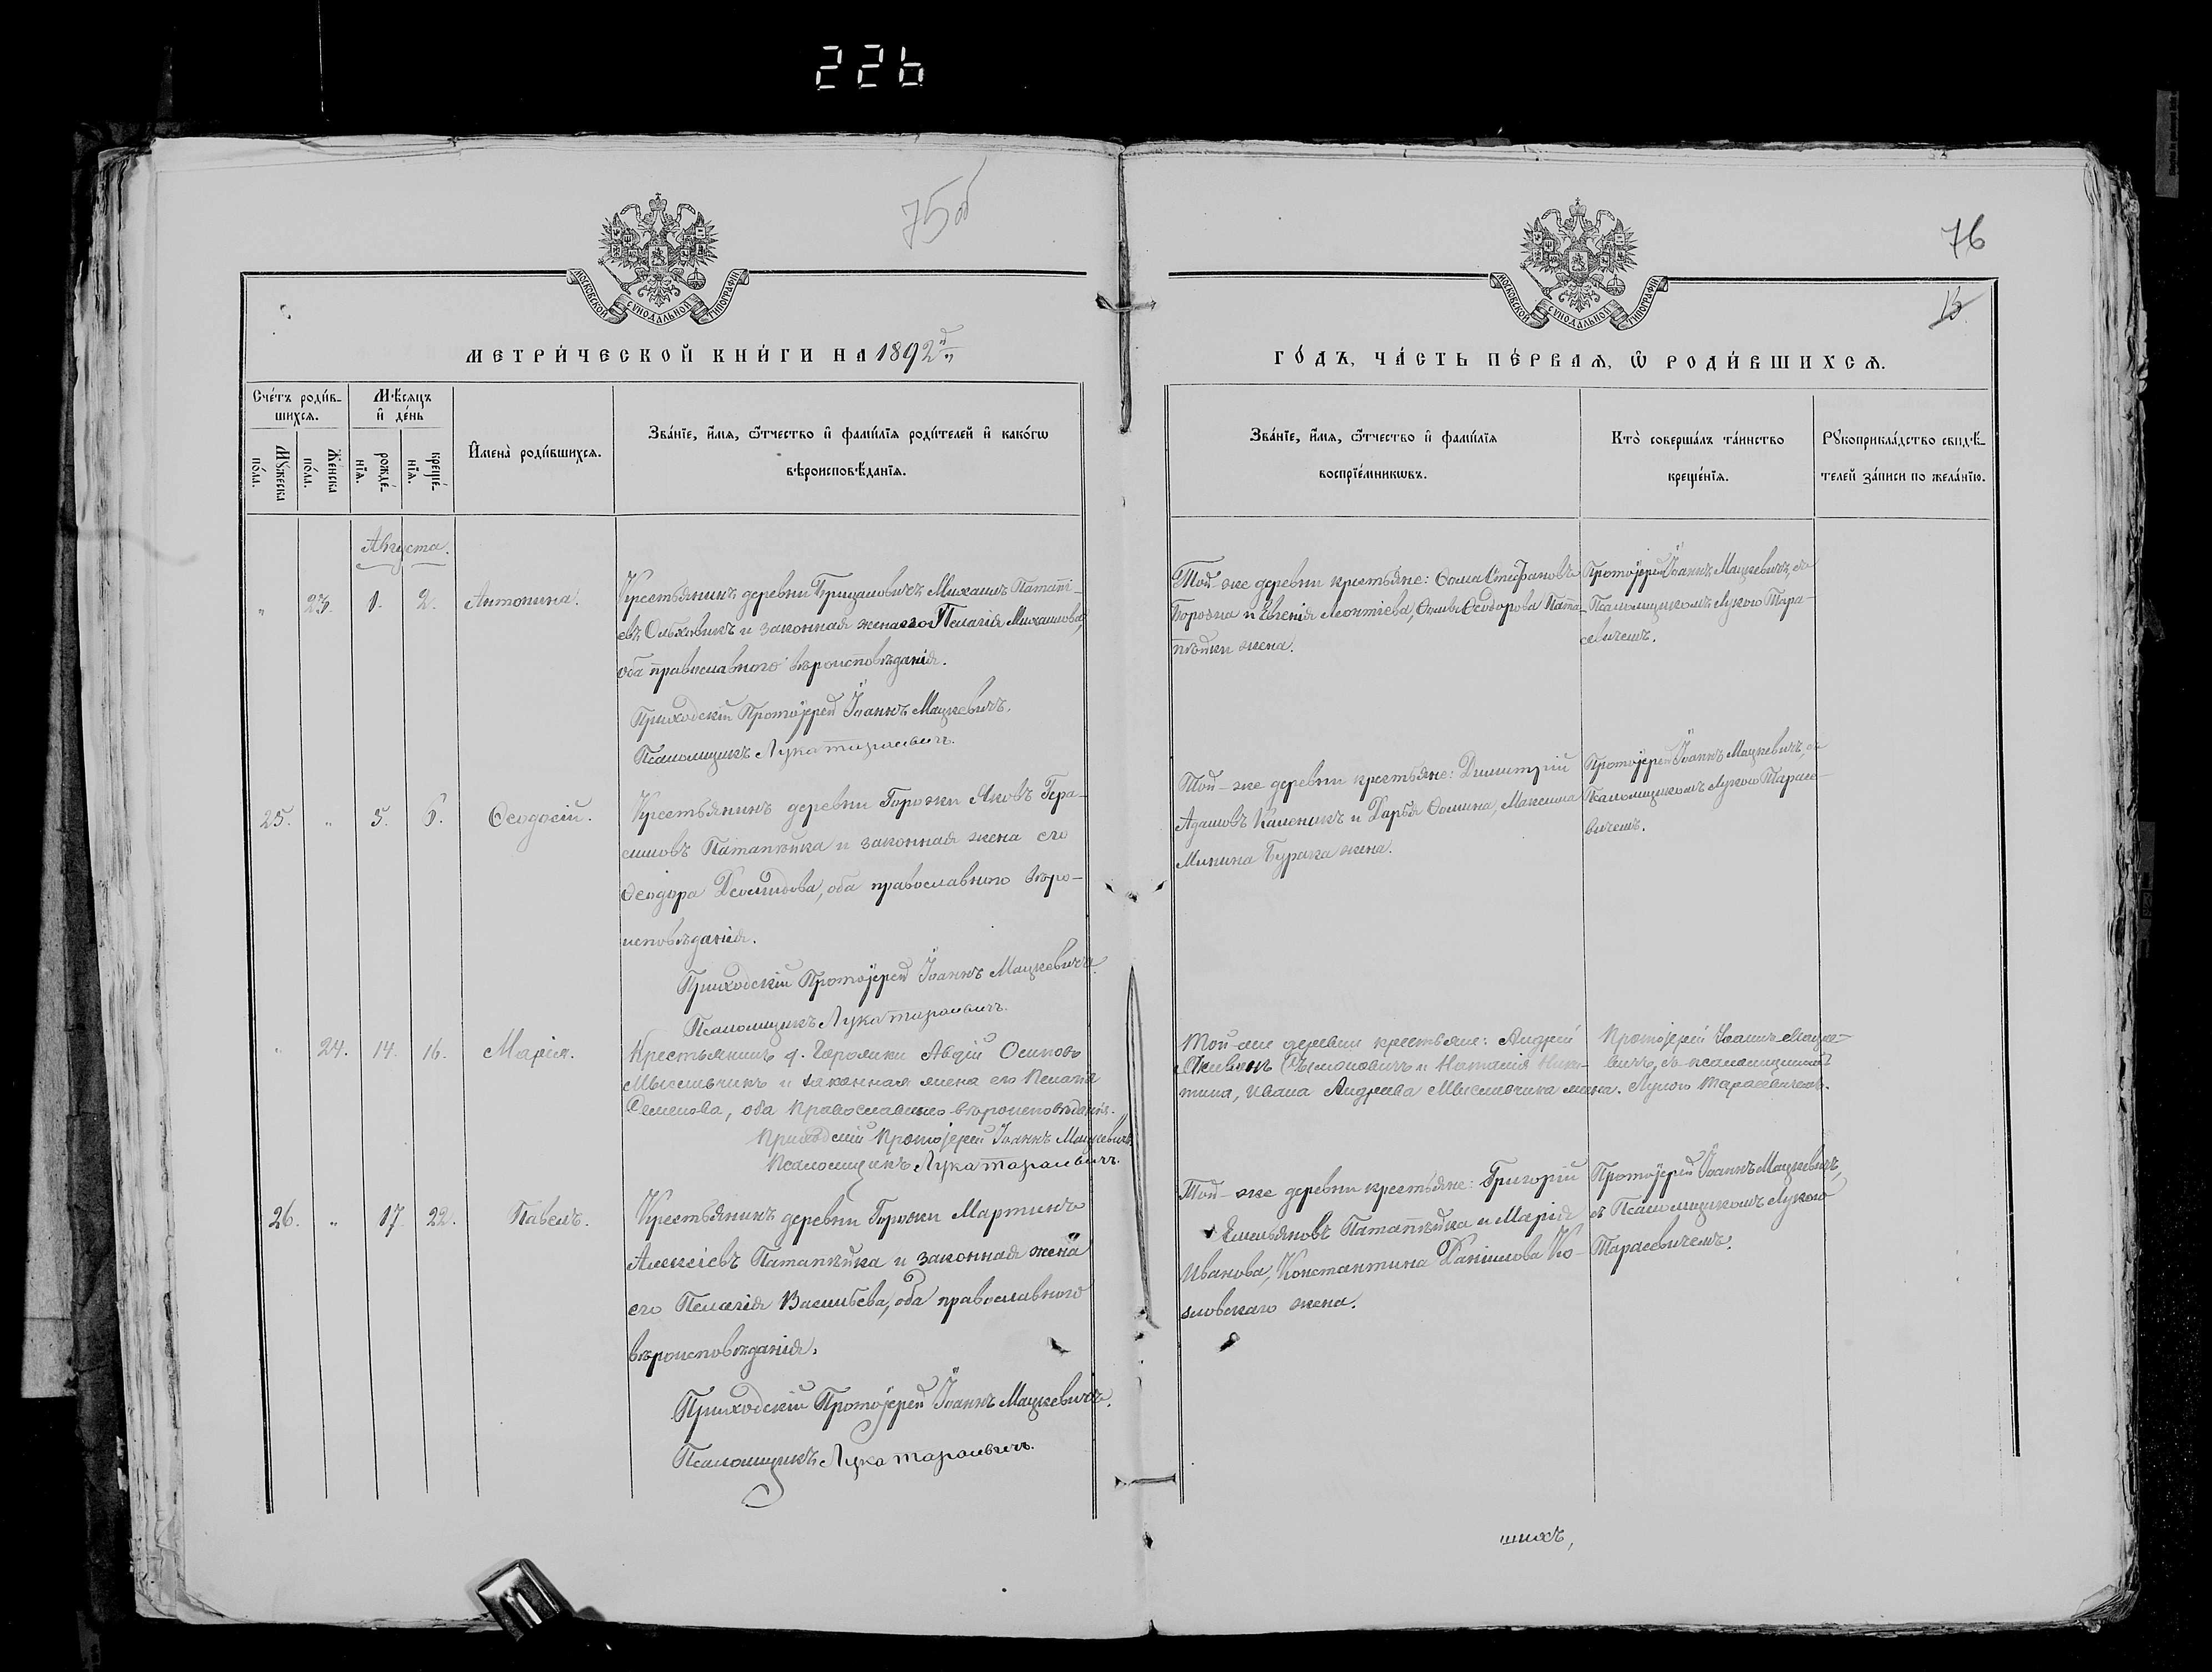 226
75об
76
15
МОСКОВСКОЙ СѴНОДАЛЬНОЙ ТИПОГРАФІИ
МОСКОВСКОЙ СѴНОДАЛЬНОЙ ТИПОГРАФІИ
МЕТРИ́ЧЕСКОЙ КНИ́ГИ НА 1892й
ГО́ДЪ, ЧА́СТЬ ПЕ́РВАѦ, Ѽ РОДИ́ВШИХСѦ.
Сче́тъ роди́в-
шихсѧ.
Мꙋ́жеска по́ла.
Же́нска по́ла.
Мѣ́сѧцъ и҆ де́нь
рожде́-
нїѧ.
креще́-
нїѧ.
И҆мена̀ роди́вшихсѧ.
Зва́нїе, и҆́мѧ, ѻ҆́тчество и҆ фами́лїѧ роди́телей и҆ како́гѡ
вѣроисповѣ́данїѧ.
Зва́нїе, и҆́мѧ, ѻ҆́тчество и҆ фами́лїѧ
воспрїе́мникѡвъ.
Кто̀ соверша́лъ та́инство
креще́нїѧ.
Рꙋкоприкла́дство свидѣ́-
телей за́писи по жела́нїю.
Августа.
" 23. 1. 2. Антонина.
Крестьянинъ деревни Михаилъ Патапі-
евъ Ольховикъ и законная жена его Пелагія Михаилова,
оба православнаго вѣроисповѣданія.
Приходскій Протоіерей Іоаннъ Мацкевичъ.
Псаломщикъ Лука Тарасевичъ.
Той-же деревни крестьяне: Ѳома Стефановъ
и Евгенія Леонтіева, Ѳеодорова Пата-
пѣйки жена.
Протоіерей Іоаннъ Мацкевичъ, съ
Псаломщикомъ Лукою Тара-
севичемъ.
25. " 5. 6. Ѳеодосій.
Крестьянинъ деревни Горожи Яковъ Гера-
симовъ Патапѣйка и законная жена его
Ѳеодора оба православнаго вѣро-
исповѣданія.
Приходскій Протоіерей Іоаннъ Мацкевичъ.
Псаломщикъ Лука Тарасевичъ.
Той-же деревни крестьяне: Димитрій
Адамовъ Каленикъ и Дарья Ѳомина, Максима
Минина Бурака жена.
Протоіерей Іоаннъ Мацкевичъ, съ
Псаломщикомъ Лукою Тарасе-
вичемъ.
" 24. 14. 16. Марія.
Крестьянинъ д. Авдій Осиповъ
Мысливчикъ и законная жена его Пелагія
Семенова, оба Православнаго вѣроисповѣданія.
Приходскій Протоіерей Іоаннъ Мацкевичъ
Псаломщикъ Лука Тарасевичъ.
Той-же деревни крестьяне: Андрей
и Наталія Ники-
тина, Ивана Андреева Мысливчика жена.
Протоіерей Іоаннъ Мацке-
вичъ, съ псаломщикомъ
Лукою Тарасевичемъ.
26. " 17. 22. Павелъ.
Крестьянинъ деревни Горожи Мартинъ
Алексіевъ Патапѣйка и законная жена
его Пелагія Васильева, оба православнаго
вѣроисповѣданія.
Приходскій Протоіерей Іоаннъ Мацкевичъ.
Псаломщикъ Лука Тарасевичъ.
Той-же деревни крестьяне: Григорій
Емельяновъ Патапѣйка и Марія
Иванова, Константина Даніилова Ко-
зловскаго жена.
Протоіерей Іоаннъ Мацкевичъ,
съ Псаломщикомъ Лукою
Тарасевичемъ.